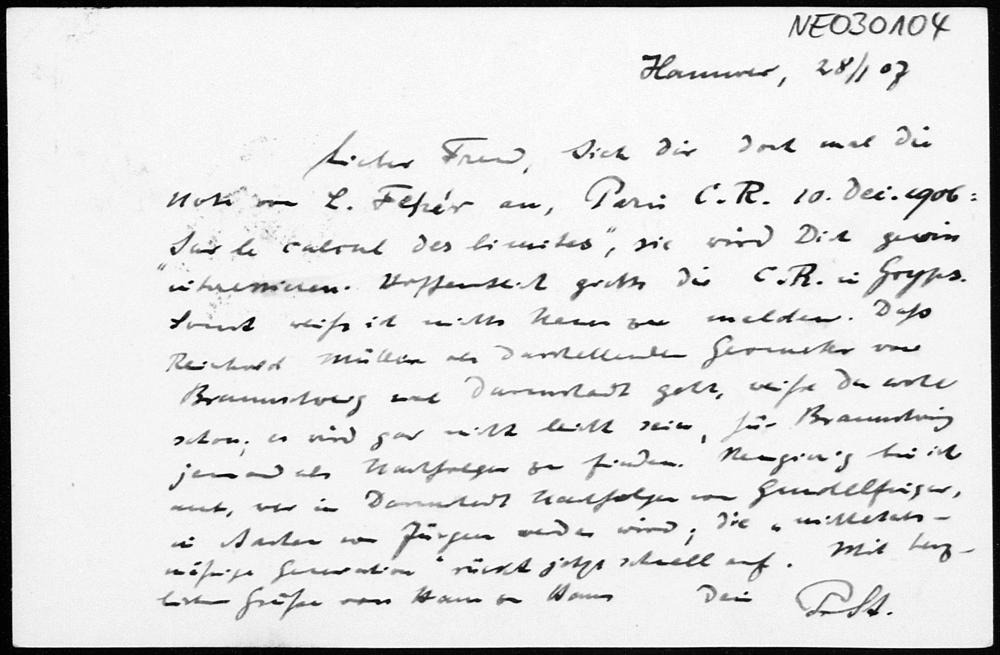 NE030104
Hannover, 28/1 07
Lieber Freund, Sieh Dir doch mal die
Note von L. Fejér an, Paris C.R. 10. Dec. 1906:
„Sur le calcul des limites", sie wird Dich gewiss
interessieren. Hoffentlich giebts die C.R. in Greifs.
Sonst weiß ich nichts Neues zu melden. Daß
Reinhold Müller als darstellender Geometer von
Braunschweig nach Darmstadt geht, weißt Du wohl
schon; es wird gar nicht leicht sein, für Braunschweig
jemand als Nachfolger zu finden. Neugierig bin ich
auch, wer in Darmstadt Nachfolger von Gundelfinger,
in Aachen von Jürgens werden wird; die „mittel-
mäßige Generation" rückt jetzt schnell auf. Mit herz-
lichen Grüßen von Haus zu Haus Dein P. St.